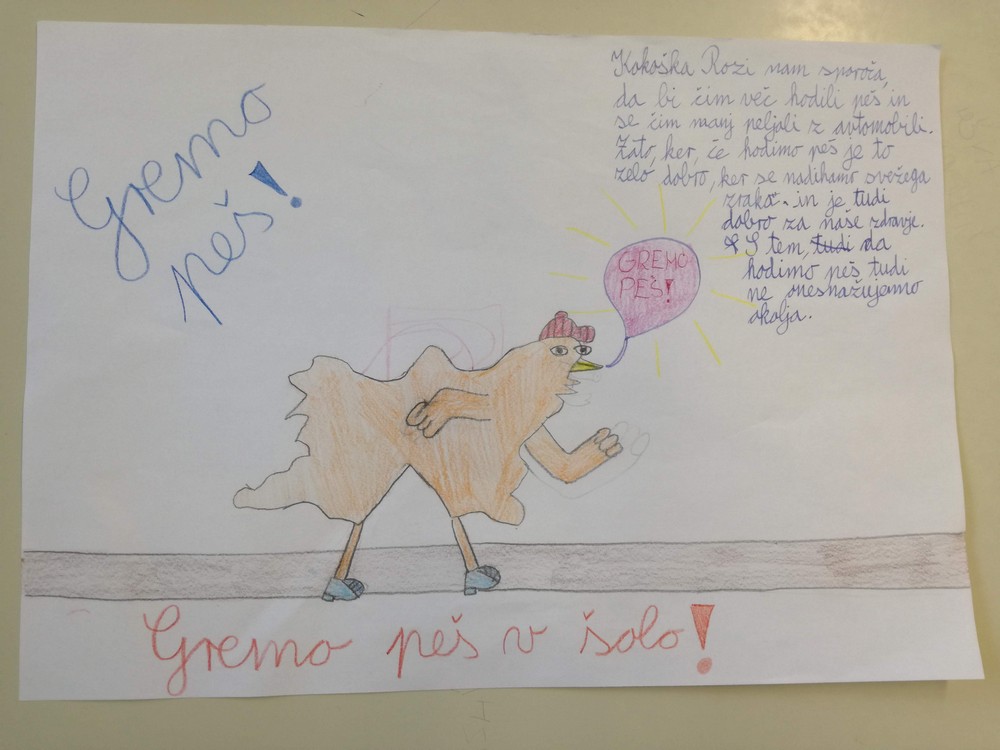 Gremo
peš!
Kokoška Rozi nam sporoča,
da bi čim več hodili peš in
se čim manj peljali z avtomobili.
Zato, ker, če hodimo peš je to
zelo dobro, ker se nadihamo svežega
zraka. in je tudi
dobro za naše zdravje.
S tem, tudi da
hodimo peš tudi
ne onesnažujemo
okolja.
GREMO
PEŠ!
Gremo peš v šolo!